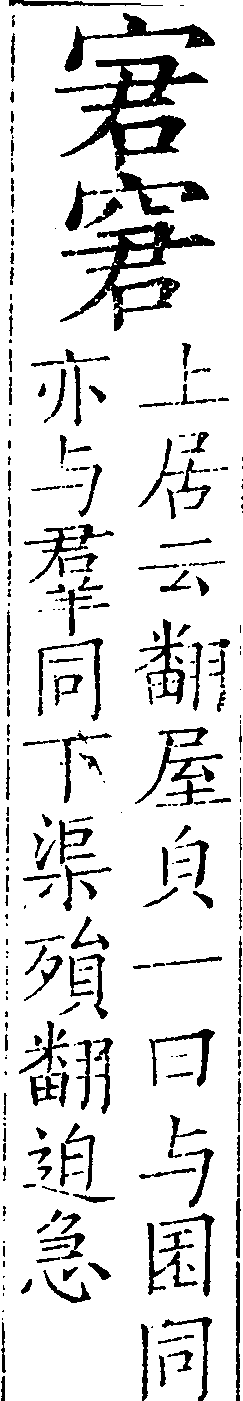 宭窘
上居云翻屋皃一曰与囷同
亦与羣同下渠殞翻迫急